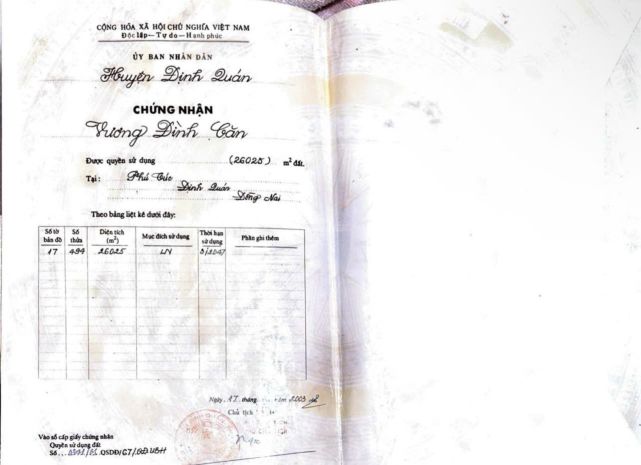 CỘNG HÒA XÃ HỘI CHỦ NGHĨA VIỆT NAM
Độc lập – Tự do – Hạnh phúc
ỦY BAN NHÂN DÂN
Huyện Định Quán
CHỨNG NHẬN
Vương Đình Căn
Được quyền sử dụng (26025) m² đất.
Tại: Phú Túc
Định Quán
Đồng Nai
Theo bảng liệt kê dưới đây:
Số tờ bản đồ Số thửa Diện tích (m²) Mục đích sử dụng Thời hạn sử dụng Phần ghi thêm
17 494 26025 LN 9/2047
Ngày 17 tháng năm 2003
Chủ tịch
Vào sổ cấp giấy chứng nhận
Quyền sử dụng đất
Số QSDĐ/CT/QĐ.UBH